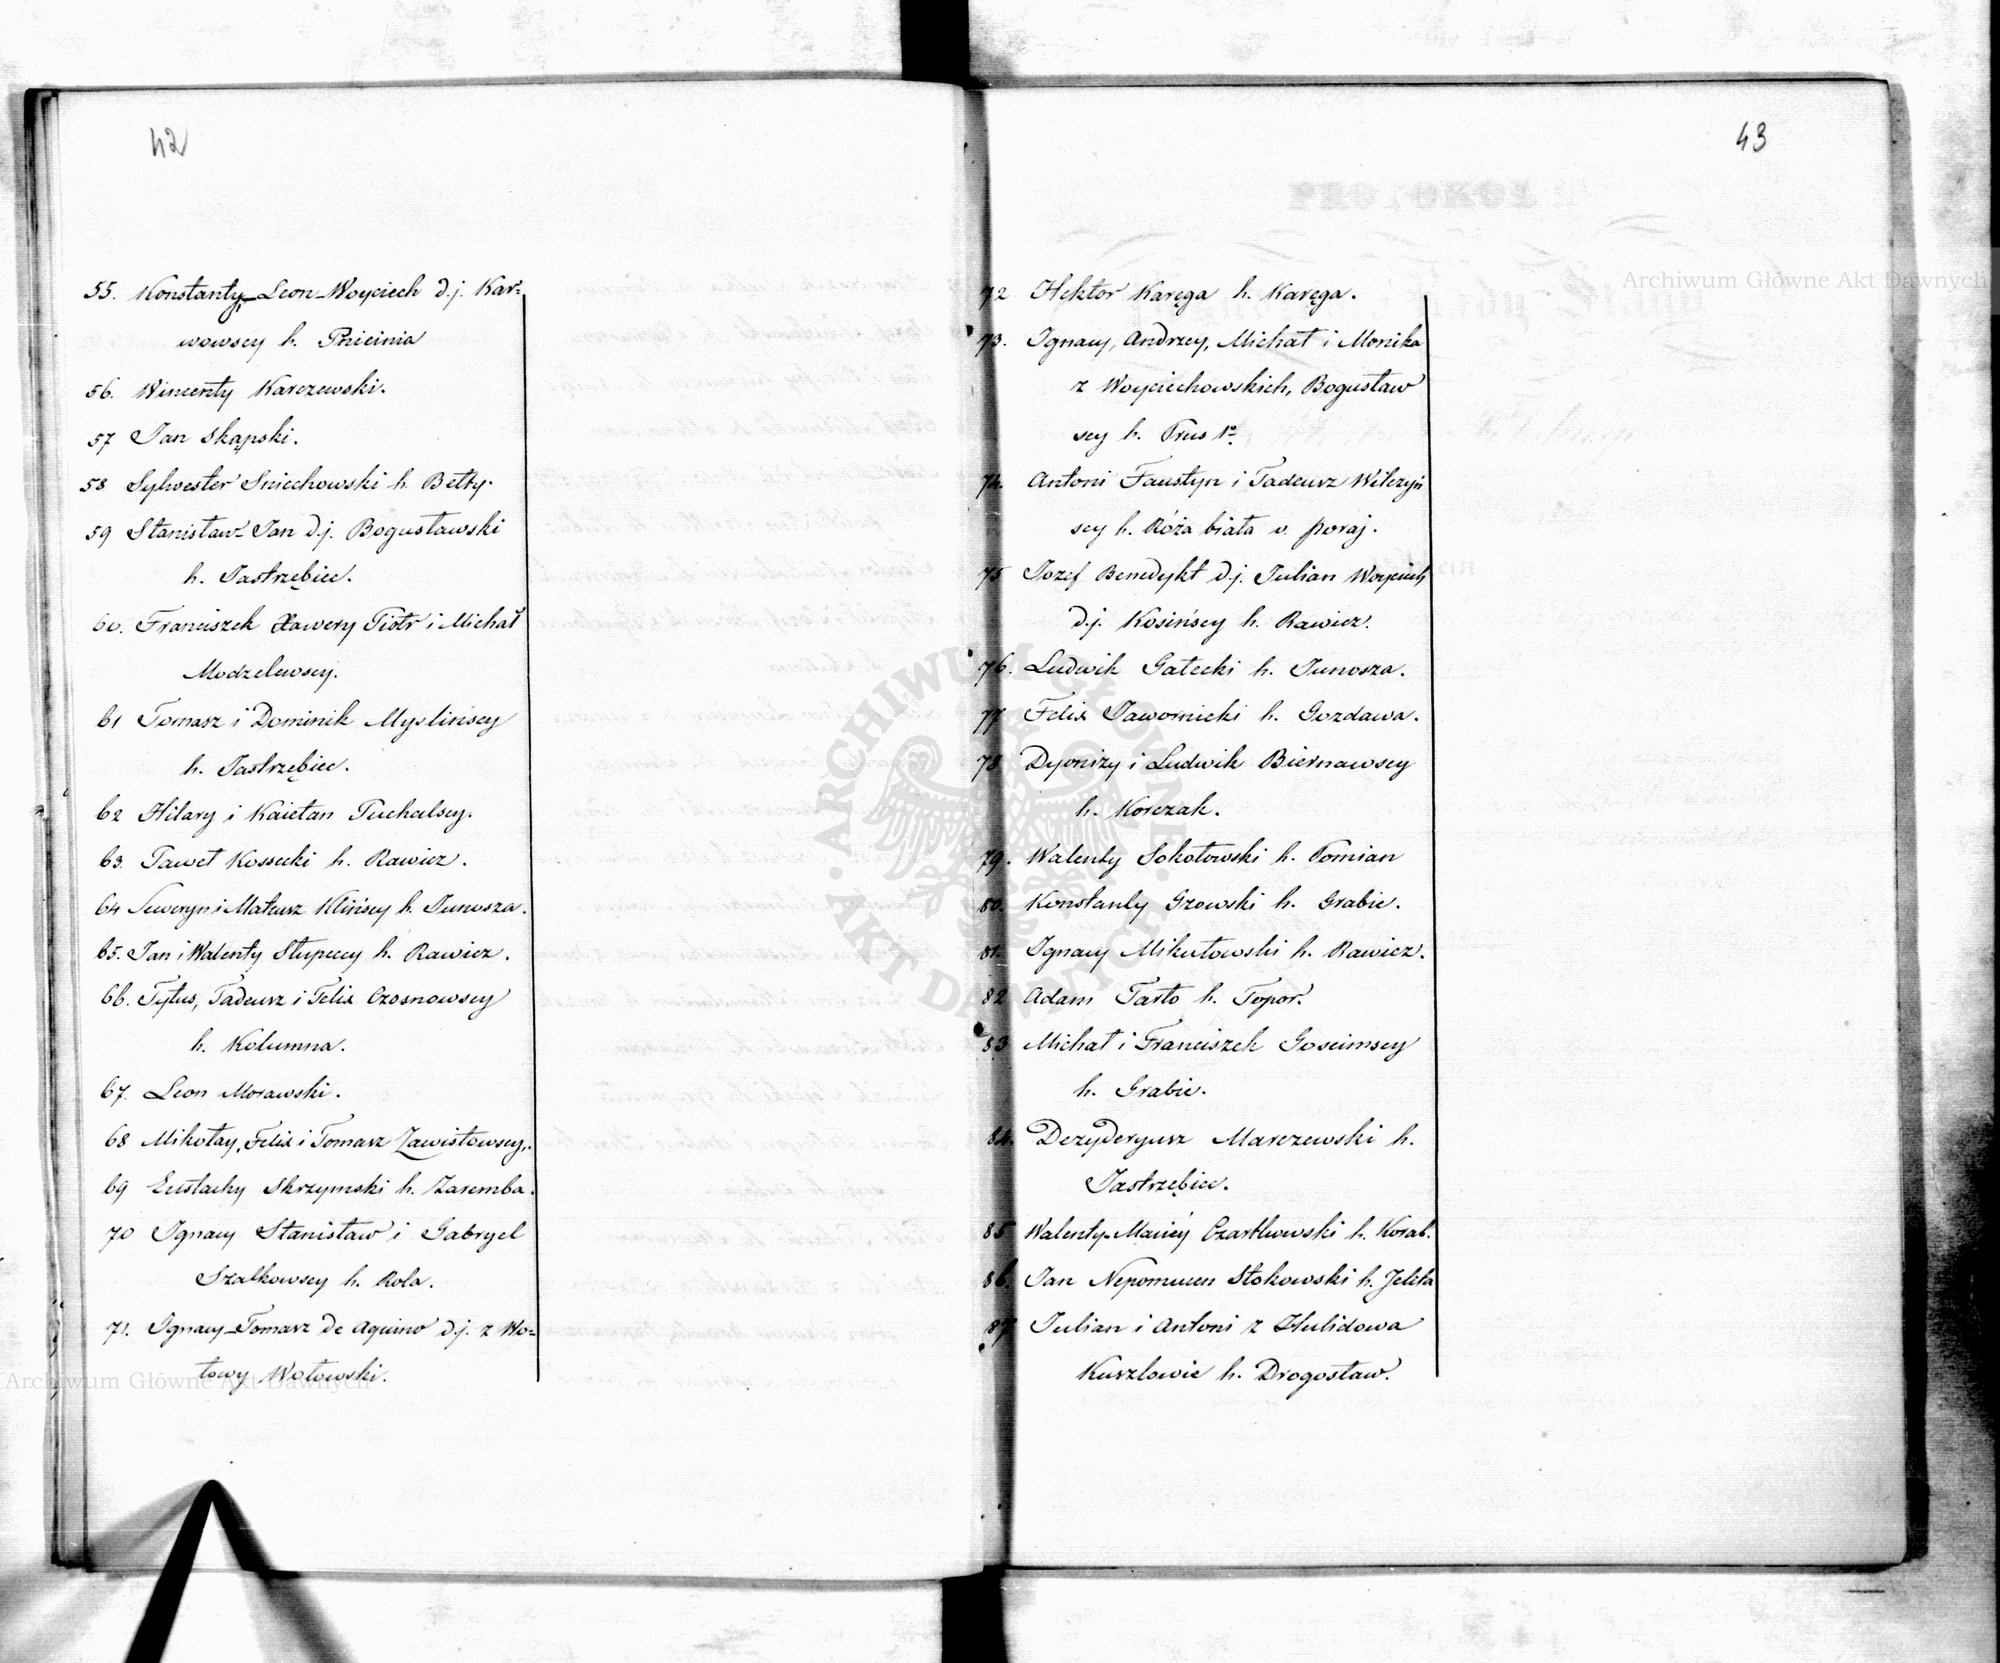 42
55. Konstanty, Leon-Woyciech d.j. Kar-
wowscy h. Pnieinia
56. Wincenty Karczewski.
57 Jan Skąpski.
58 Sylwester Sniechowski h. Bełty.
59 Stanisław-Jan d.j. Bogusławski
h. Jastrzębiec.
60. Franciszek Xawery Piotr i Michał
Modzelewscy.
61 Tomasz i Dominik Myslińscy
h. Jastrzębiec.
62 Hilary i Kaietan Tuchalscy.
63. Paweł Kossecki h. Rawicz.
64 Seweryn i Mateusz Klińscy h. Junosza.
65. Jan i Walenty Słupeccy h. Rawicz.
66. Tytus, Tadeusz i Felix Czosnowscy
h. Kolumna.
67. Leon Morawski.
68 Mikołay, Felix i Tomasz Zawistowscy.
69 Eustachy Skrzymski h. Zaremba.
70 Ignacy Stanisław i Gabryel
Szałkowscy h. Rola.
71. Ignacy-Tomasz de Aquino d.j. z Wo-
łowy Wołowski.
43
PROTOKOŁ
72 Hektor Karęga h. Karęga.
73. Ignacy, Andrzey, Michał i Monika
z Woyciechowskich, Bogusław
scy h. Prus 1º
74. Antoni Faustyn i Tadeusz Wilczyń
scy h. Róża biała v. Poraj.
75 Jozef Benedykt d.j. Julian Woyciech
d.j. Kosińscy h. Rawicz.
76. Ludwik Gałecki h. Junosza.
77 Felix Jawornicki h. Gozdawa.
78 Dyonizy i Ludwik Biernawscy
h. Korczak.
79. Walenty Sokołowski h. Pomian
80. Konstanty Gzowski h. Grabie.
81. Ignacy Mikułowski h. Rawicz.
82 Adam Tarło h. Topor.
83 Michał i Franciszek Goscimscy
h. Grabie.
84. Dezyderyusz Marczewski h.
Jastrzębiec.
85 Walenty-Maciéy Czartkowski h. Korab.
86. Jan Nepomucen Stokowski h. Jelita
87 Julian i Antoni z Hulidowa
Kuszlowie h. Drogosław.
Archiwum Główne Akt Dawnych
Archiwum Główne Akt Dawnych
ARCHIWUM GŁÓWNE AKT DAWNYCH